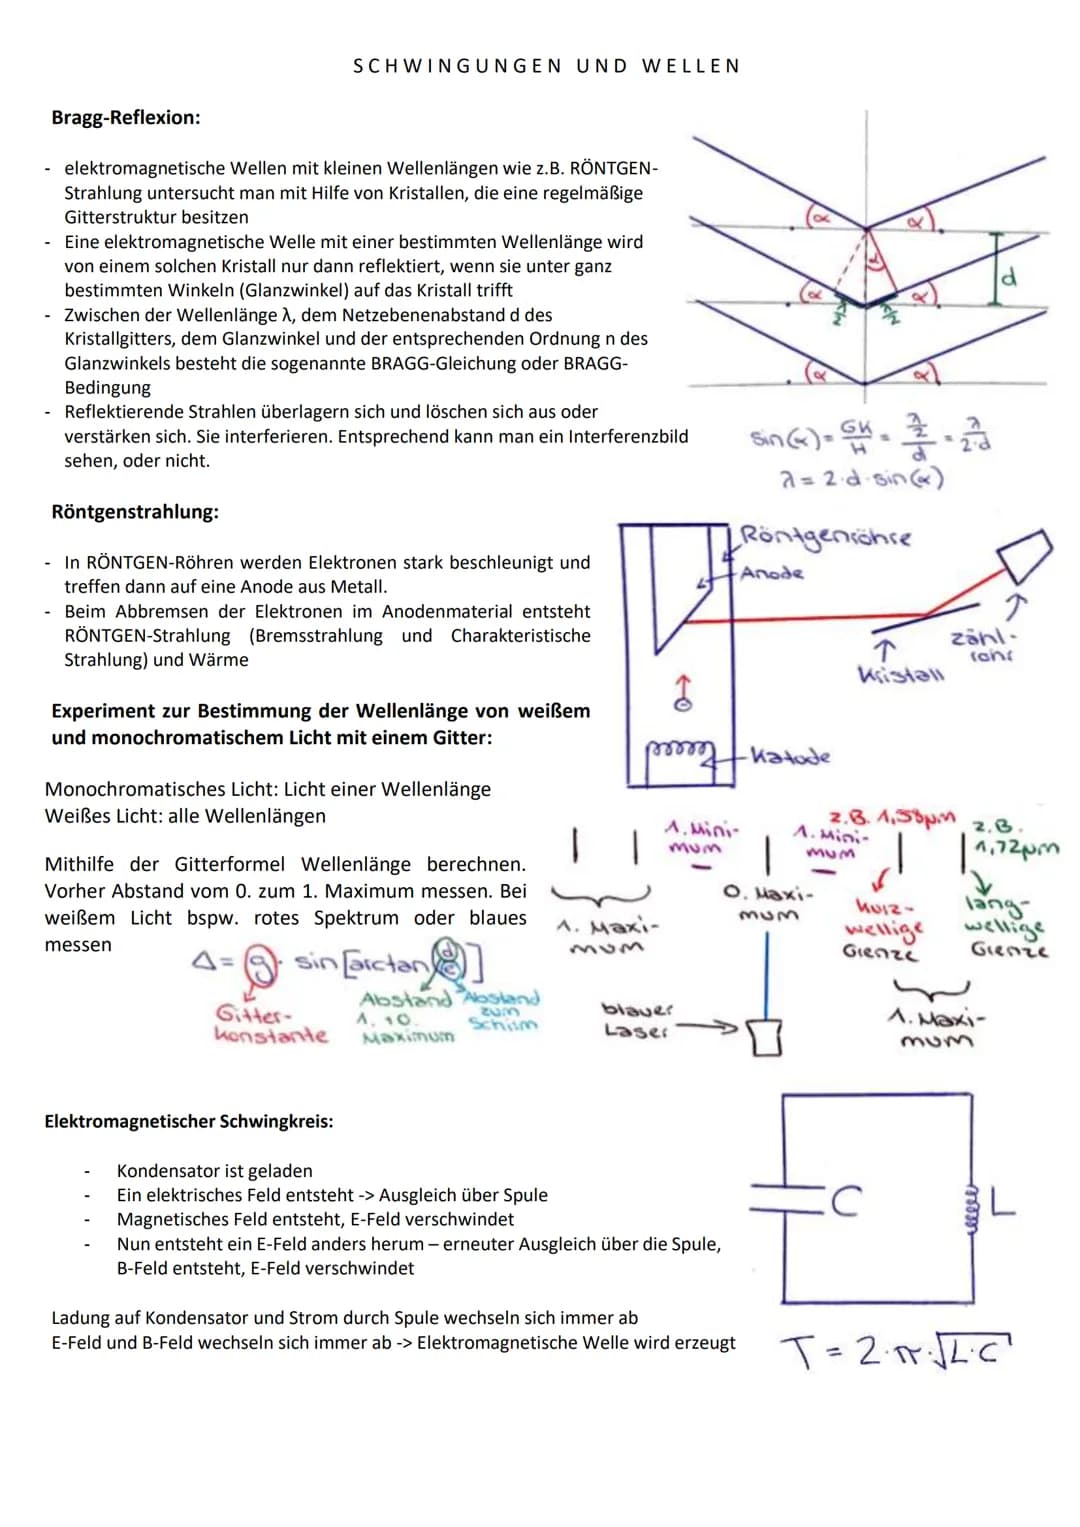 SCHWINGUNGEN UND WELLEN
Bragg-Reflexion:
- elektromagnetische Wellen mit kleinen Wellenlängen wie z.B. RÖNTGEN-
Strahlung untersucht man mit Hilfe von Kristallen, die eine regelmäßige
Gitterstruktur besitzen
- Eine elektromagnetische Welle mit einer bestimmten Wellenlänge wird
von einem solchen Kristall nur dann reflektiert, wenn sie unter ganz
bestimmten Winkeln (Glanzwinkel) auf das Kristall trifft
- Zwischen der Wellenlänge λ, dem Netzebenenabstand d des
Kristallgitters, dem Glanzwinkel und der entsprechenden Ordnung n des
Glanzwinkels besteht die sogenannte BRAGG-Gleichung oder BRAGG-
Bedingung
- Reflektierende Strahlen überlagern sich und löschen sich aus oder
verstärken sich. Sie interferieren. Entsprechend kann man ein Interferenzbild
sehen, oder nicht.
α α
α α
α α
α
d
λ/2 λ/2
sin(α) = GK/H = (λ/2)/d = λ/(2·d)
λ = 2·d·sin(α)
Röntgenstrahlung:
- In RÖNTGEN-Röhren werden Elektronen stark beschleunigt und
treffen dann auf eine Anode aus Metall.
- Beim Abbremsen der Elektronen im Anodenmaterial entsteht
RÖNTGEN-Strahlung (Bremsstrahlung und Charakteristische
Strahlung) und Wärme
Röntgenröhre
Anode
Kristall
zähl-
rohr
Katode
Experiment zur Bestimmung der Wellenlänge von weißem
und monochromatischem Licht mit einem Gitter:
Monochromatisches Licht: Licht einer Wellenlänge
Weißes Licht: alle Wellenlängen
Mithilfe der Gitterformel Wellenlänge berechnen.
Vorher Abstand vom 0. zum 1. Maximum messen. Bei
weißem Licht bspw. rotes Spektrum oder blaues
messen
λ = g · sin[arctan(d/e)]
Gitter-
konstante
Abstand
1. + 0.
Maximum
Abstand
zum
Schirm
1. Mini-
mum
1. Maxi-
mum
0. Maxi-
mum
1. Mini-
mum
z.B. 1,58µm
kurz-
wellige
Grenze
z.B.
1,72µm
lang-
wellige
Grenze
1. Maxi-
mum
blauer
Laser
Elektromagnetischer Schwingkreis:
- Kondensator ist geladen
- Ein elektrisches Feld entsteht -> Ausgleich über Spule
- Magnetisches Feld entsteht, E-Feld verschwindet
- Nun entsteht ein E-Feld anders herum – erneuter Ausgleich über die Spule,
B-Feld entsteht, E-Feld verschwindet
C
L
Ladung auf Kondensator und Strom durch Spule wechseln sich immer ab
E-Feld und B-Feld wechseln sich immer ab -> Elektromagnetische Welle wird erzeugt
T = 2·π·√L·C